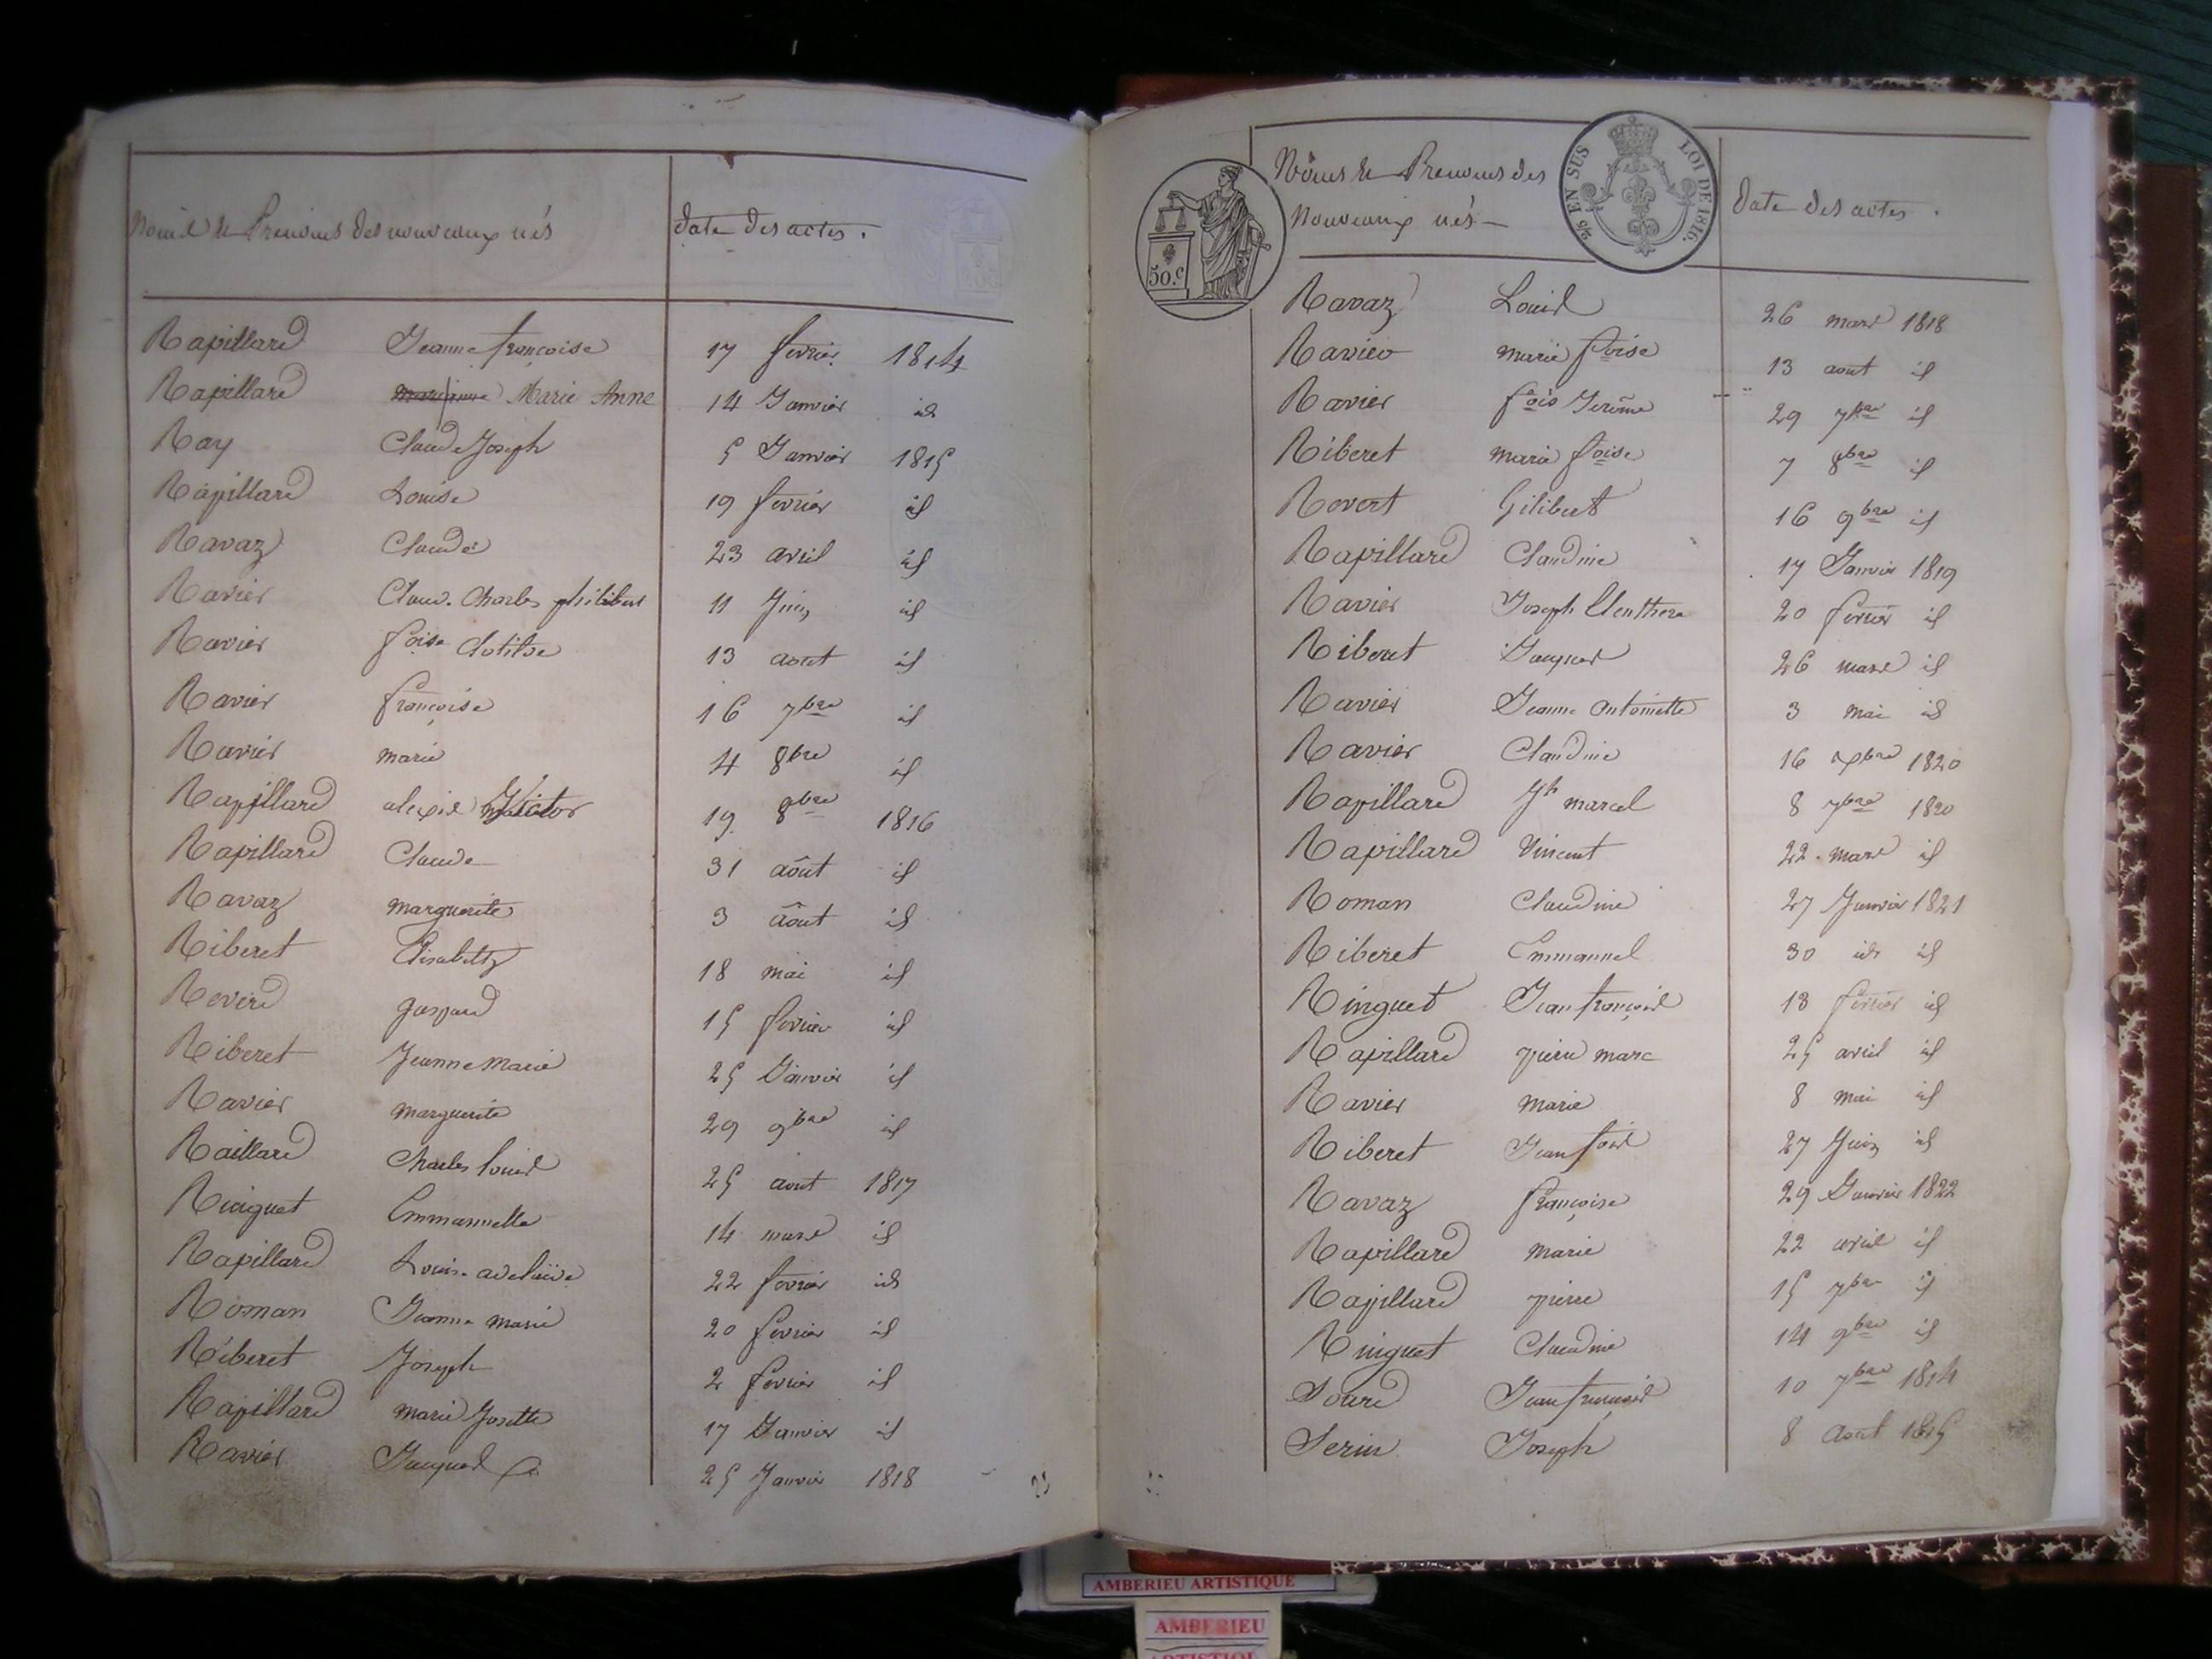 Noms et Prenoms des nouveaux nés
date des actes.
Rapillard Jeanne françoise 17 fevrier 1814
Rapillard Marie Anne 14 Janvier id
Ray Claude Joseph 5 Janvier 1815
Rapillard Louise 19 fevrier id
Ravaz Claude 23 avril id
Ravier Claud. Charles philibert 11 Juin id
Ravier foise Clotilde 13 aout id
Ravier françoise 16 7bre id
Ravier marie 4 8bre id
Rapillard alexis Victor 19 8bre 1816
Rapillard Claude 31 août id
Ravaz marguerite 3 août id
Riberet Elisabeth 18 mai id
Reverd gaspard 15 fevrier id
Riberet Jeanne Marie 25 Janvier id
Ravier marguerite 29 9bre id
Raillard Charles Louis 25 aout 1817
Ringuet Emmanuelle 14 mars id
Rapillard Louise adelaïde 22 fevrier id
Roman Jeanne Marie 20 fevrier id
Riberet Joseph 2 fevrier id
Rapillard marie Josette 17 Janvier id
Ravier Jacques 25 Janvier 1818
50.c
Noms et Prenoms des
Nouveaux nés
EN SUS LOI DE 1816.
date des actes.
Ravaz Louis 26 mars 1818
Ravier marie foise 13 aout id
Ravier fois Jerôme 29 7bre id
Riberet marie foise 7 8bre id
Revert Gilibert 16 9bre id
Rapillard Claudine 17 Janvier 1819
Ravier Joseph Eleuthere 20 fevrier id
Riberet Jacques 26 mars id
Ravier Jeanne antoinette 3 mai id
Ravier Claudine 16 1820
Rapillard Jh marcel 8 7bre 1820
Rapillard Vincent 22 mars id
Roman Claudine 27 Janvier 1821
Riberet Emmanuel 30 id id
Ringuet Jean françois 18 fevrier id
Rapillard pierre marc 25 avril id
Ravier marie 8 mai id
Riberet Jean fois 27 Juin id
Ravaz françoise 29 Janvier 1822
Rapillard marie 22 avril id
Rapillard pierre 15 7bre id
Ringuet Claudine 14 9bre id
Sourd Jean françois 10 7bre 1814
Serin Joseph 8 Août 1815
AMBERIEU ARTISTIQUE
AMBERIEU
ARTISTIQUE